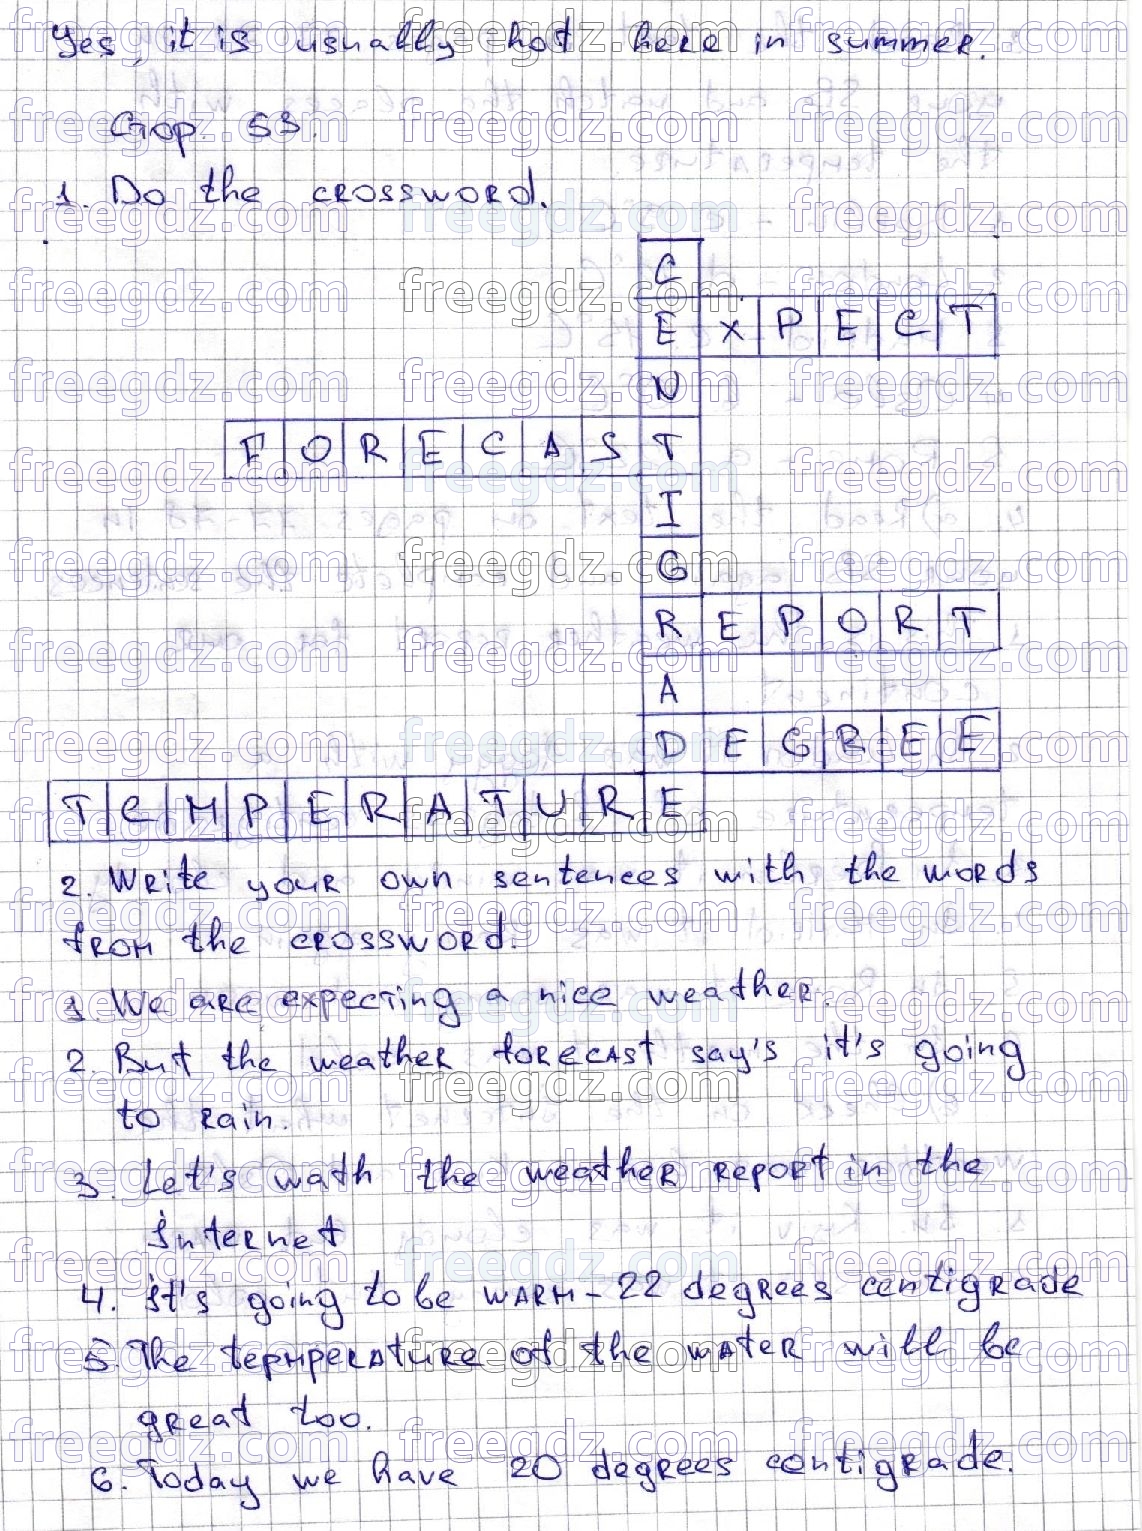 Yes, it is usually hot here in summer.
Стр. 53.
1. Do the crossword.
C
EXPECT
N
FORECAST
I
G
REPORT
A
DEGREE
TEMPERATURE
2. Write your own sentences with the words
from the crossword.
1. We are expecting a nice weather.
2. But the weather forecast say's it's going
to rain.
3. Let's wath the weather report in the
internet
4. it's going to be warm - 22 degrees centigrade
5. The tepmperature of the water will be
great too.
6. Today we have 20 degrees centigrade.
freegdz.com